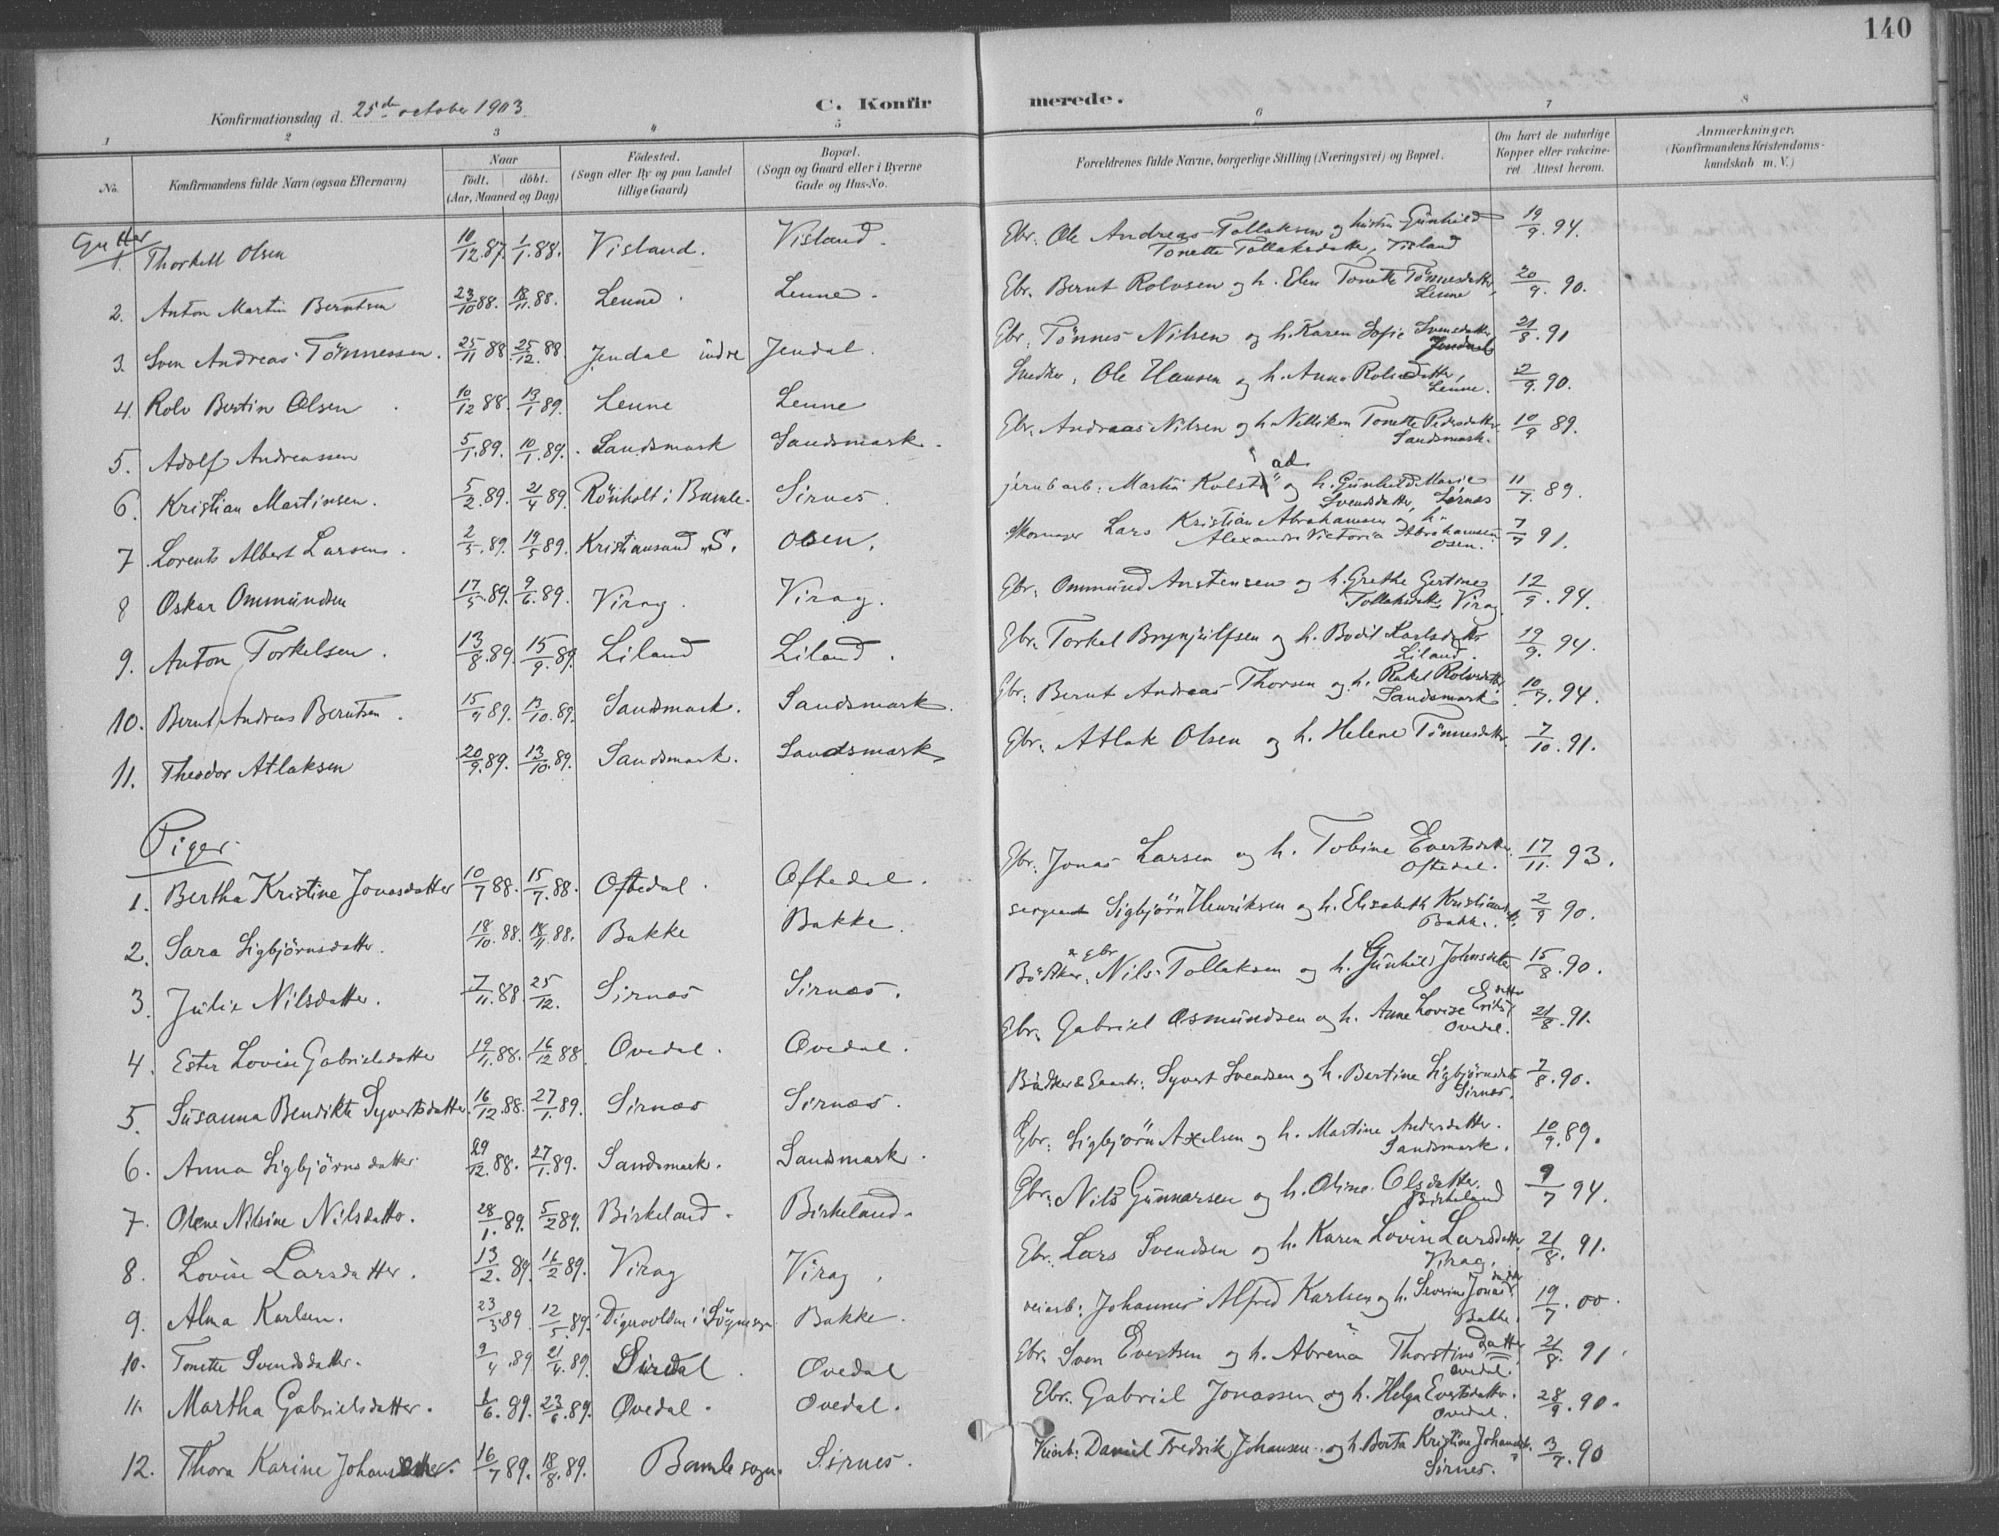 140
Konfirmationsdag d. 25de october 1903.
C. Konfir merede.
1 2 3 4 5 6 7 8
No.
Konfirmandens fulde Navn (ogsaa Efternavn)
Naar
födt. döbt.
(Aar, Maaned og Dag)
Födested.
(Sogn eller By og paa Landet
tillige Gaard)
Bopæl.
(Sogn og Gaard eller i Byerne
Gade og Hus-No.
Forældrenes fulde Navne, borgerlige Stilling (Næringsvei) og Bopæl.
Om havt de naturlige
Kopper eller vakcine-
ret. Attest herom.
Anmærkninger.
(Konfirmandens Kristendoms-
kundskab m. V.)
Gutter
1. Thorkell Olsen 10/12.87. 1/1.88. Visland. Visland. Gbr. Ole Andreas Tollaksen og hustru Gunhild 19/9.94.
Tonette Tollaksdatter, Visland
2. Anton Martin Berntsen 23/10 88. 18/11.88. Lenne. Lenne. Gbr. Bernt Rolvsen og h. Elen Tonette Tönnesdatter, 20/9.90.
Lenne
3. Sven Andreas Tönnessen. 25/11 88. 25/12.88 Jendal indre Jendal. Gbr. Tönnes Nilsen og h. Karen Sofie Svensdatter 21/8.91
Jendal
4. Rolv Bertin Olsen 10/12 88. 13/1 89. Lenne Lenne Snedker. Ole Hansen og h. Anna Rolvsdatter, 2/9.90.
Lenne.
5. Adolf Andreassen 5/1.89. 10/1.89. Sandsmark Sandsmark. Gbr. Andreas Nilsen og h. Nelliken Tonette Pedersdatter 10/9 89.
Sandsmark.
6. Kristian Martinsen. 5/2.89. 21/4 89. Rönholt i Bamle. Sirnes. jernb arb: Martin Kolstad og h. Gunhild Marie 11/7.89.
Svendsdatter, Sirnes
7. Lorents Albert Larsen. 2/5.89. 19/5 89. Kristiansand S. Osen. Skomager Lars Kristian Abrahamsen og h. 7/7 91.
Alexandra Victoria Abrahamsen
Osen.
8 Oskar Ommundsen 17/5.89. 9/6.89. Virag. Virag. Gbr. Ommund Anstensen og h. Grethe Gertine 12/9.94.
Tollaksdatter Virag.
9. Anton Torkelsen. 13/8.89. 15/9.89 Liland Liland. Gbr. Torkel Brynjulfsen og h. Bodil Karlsdatter 19/9.94.
Liland.
10. Bernt Andreas Berntsen. 15/9 89. 13/10.89. Sandsmark. Sandsmark. Gbr. Bernt Andreas Thorsen og h. Rakel Rolvsdatter 10/7.94.
Sandsmark
11. Theodor Atlaksen 20/9.89. 13/10.89. Sandsmark. Sandsmark Gbr. Atlak Olsen og h. Helene Tönnesdatter. 7/10.91.
Piger.
1. Bertha Kristine Jonasdatter 10/7 88. 15/7.88. Oftedal. Oftedal. Gbr. Jonas Larsen og h. Tobine Evertsdatter. 17/11.93.
Oftedal.
2. Sara Sigbjörnsdatter. 18/10.88. 18/11.88. Bakke Bakke. Sergeant Sigbjörn Henriksen og h. Elisabeth Kristians 2/9 90.
Bakke.
3. Julie Nilsdatter. 7/11.88 25/12. Sirnæs Sirnæs. Bödker & gbr. Nils Tollaksen og h. Gunhild Johnsdatter 15/8.90.
4. Ester Lovise Gabrielsdatter 19/11.88. 16/12 88 Ovedal. Ovedal. Gbr. Gabriel Osmundsen og h. Anne Lovise Eriksdatter 21/8.91.
Ovedal.
5. Susanna Bendikte Syvertsdatter 16/12.88. 27/1.89. Sirnæs Sirnæs. Bödker & Gaarbr. Syvert Svendsen og h. Bertine Sigbjörnsdatter 7/8.90.
Sirnæs.
6. Anna Sigbjörnsdatter 29/12.88. 27/1.89. Sandsmark. Sandsmark. Gbr. Sigbjörn Axelsen og h. Martine Andersdatter. 10/9.89.
Sandsmark.
7. Olene Nilsine Nilsdatter. 28/1.89. 5/2 89. Birkeland. Birkeland. Gbr. Nils Gunnarsen og h. Oline Olsdatter 9/7 94.
Birkeland
8. Lovise Larsdatter. 13/2.89. 16/2 89. Virag Virag. Gbr. Lars Svendsen og h. Karen Lovise Larsdatter 21/8.91.
Virag.
9. Alma Karlsen. 23/3.89 12/5.89. Digevolden i Sögne sogn Bakke. veiarb. Johannes Alfred Karlsen og h. Severine Jonasdatter 19/7.00.
Bakke.
10. Tonette Svendsdatter. 2/4.89 21/4.89. Sirdal. Ovedal Gbr. Sven Evertsen og h. Abrena Thorstinsdatter 21/8.91.
Ovedal.
11. Martha Gabrielsdatter. 1/6.89. 23/6.89. Ovedal. Ovedal. Gbr. Gabriel Jonassen og h. Helga Evertsdatter. 28/9.90.
Ovedal.
12. Thora Karine Johansdatter. 16/7 89. 18/8.89. Bamle sogn. Sirnes. Veiarb. Daniel Fredrik Johansen og h. Berta Kristine Johansdt. 3/7.90
Sirnes.